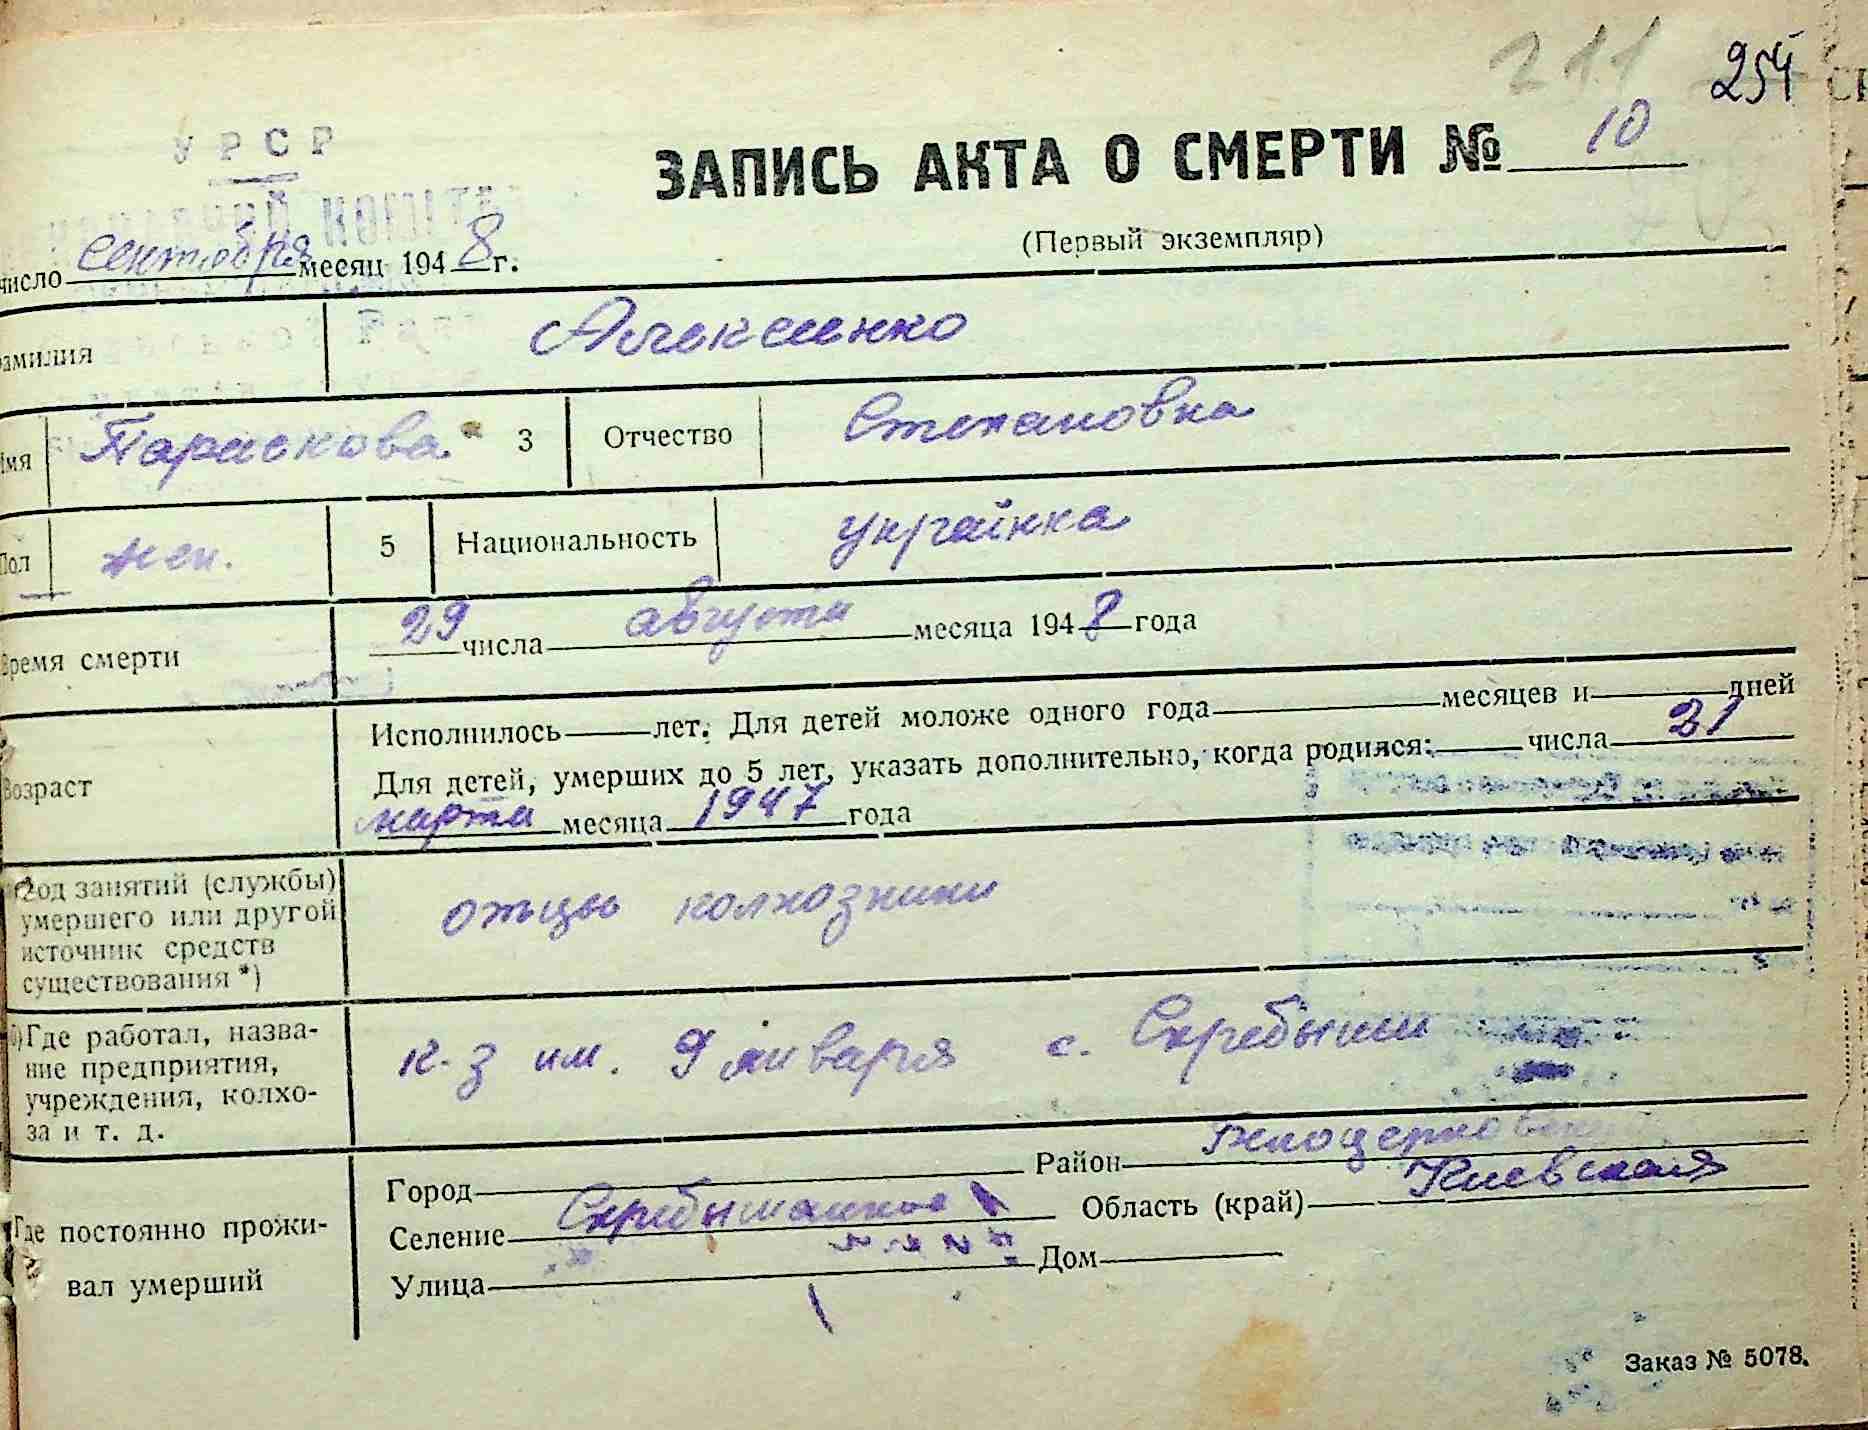 211 254
УРСР
ЗАПИСЬ АКТА О СМЕРТИ № 10
(Первый экземпляр)
число сентября месяц 1948 г.
амилия Алексеенко
Имя Парасковя 3 Отчество Степановна
Пол жен. 5 Национальность українка
Время смерти 29 числа августа месяца 1948 года
Возраст
Исполнилось лет. Для детей моложе одного года месяцев и дней
Для детей, умерших до 5 лет, указать дополнительно, когда родился: числа 21
марта месяца 1947 года
Род занятий (службы)
умершего или другой
источник средств
существования *)
отцы колхозники
Где работал, назва-
ние предприятия,
учреждения, колхо-
за и т. д.
к-з им. 9 января с. Скребыши
Где постоянно прожи-
вал умерший
Город Район Белоцерковский
Селение Скребышанское Область (край) Киевская
Улица Дом
Заказ № 5078.